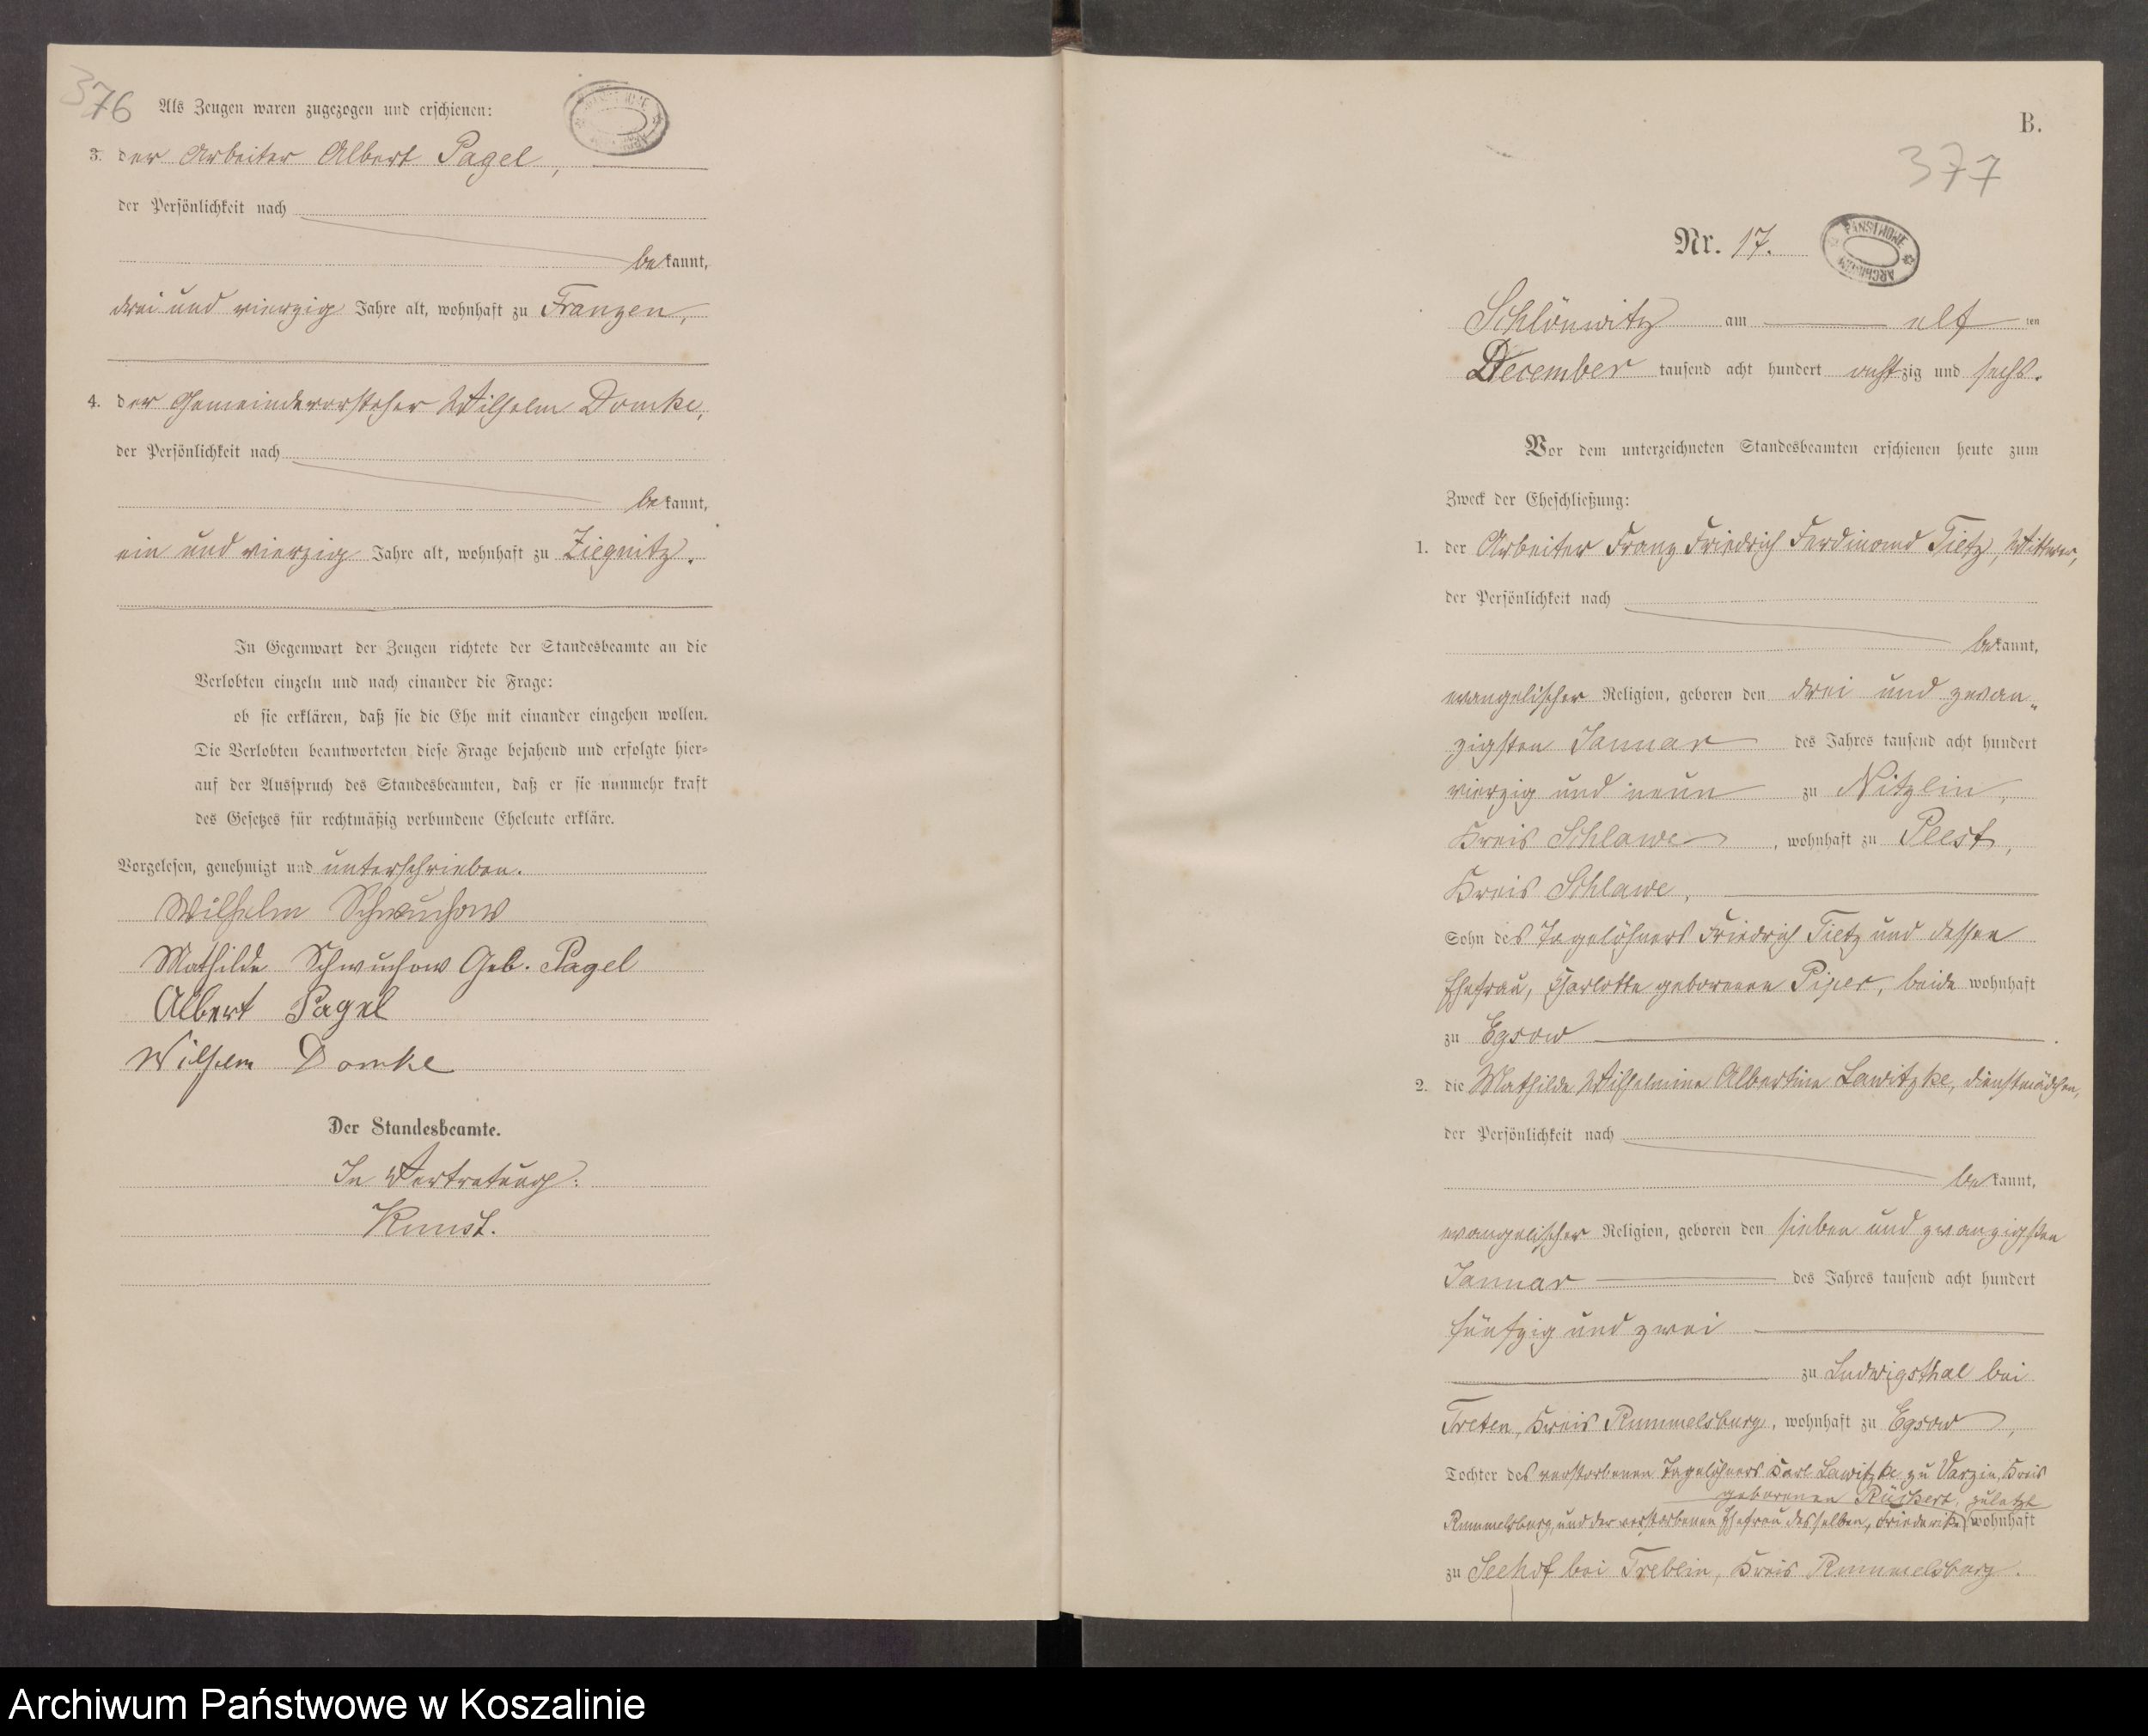 376
Als Zeugen waren zugezogen und erschienen:
3. der Arbeiter Albert Pagel,
der Persönlichkeit nach
bekannt,
drei und vierzig Jahre alt, wohnhaft zu Franzen,
4. der Gemeindevorsteher Wilhelm Domke,
der Persönlichkeit nach
bekannt,
ein und vierzig Jahre alt, wohnhaft zu Ziegnitz.
In Gegenwart der Zeugen richtete der Standesbeamte an die
Verlobten einzeln und nach einander die Frage:
ob sie erklären, daß sie die Ehe mit einander eingehen wollen.
Die Verlobten beantworteten diese Frage bejahend und erfolgte hier-
auf der Ausspruch des Standesbeamten, daß er sie nunmehr kraft
des Gesetzes für rechtmäßig verbundene Eheleute erkläre.
Vorgelesen, genehmigt und unterschrieben.
Wilhelm Schwuchow
Mathilde Schwuchow Geb. Pagel
Albert Pagel
Wilhelm Domke
Der Standesbeamte.
In Vertretung:
Kunst.
B.
377
Nr. 17.
PANSTWOWE ARCHIWUM
Schlönwitz am elf ten
December tausend acht hundert achtzig und sechs.
Vor dem unterzeichneten Standesbeamten erschienen heute zum
Zweck der Eheschließung:
1. der Arbeiter Franz Friedrich Ferdinand Tietz, Wittwer,
der Persönlichkeit nach
bekannt,
evangelischer Religion, geboren den drei und zwan-
zigsten Januar des Jahres tausend acht hundert
vierzig und neun zu Nitzlin,
Kreis Schlawe, wohnhaft zu Peest,
Kreis Schlawe,
Sohn des Tagelöhners Friedrich Tietz und dessen
Ehefrau, Charlotte geborenen Piper, beide wohnhaft
zu Egsow.
2. die Mathilde Wilhelmine Albertine Lawitzke, Dienstmädchen,
der Persönlichkeit nach
bekannt,
evangelischer Religion, geboren den sieben und zwanzigsten
Januar des Jahres tausend acht hundert
fünfzig und zwei
zu Ludwigsthal bei
Treten, Kreis Rummelsburg, wohnhaft zu Egsow,
Tochter des verstorbenen Tagelöhners Karl Lawitzke zu Varzin, Kreis
geborenen Rückert, zuletzt
Rummelsburg, und der verstorbenen Ehefrau desselben, Friederike wohnhaft
zu Seehof bei Treblin, Kreis Rummelsburg.
Archiwum Państwowe w Koszalinie